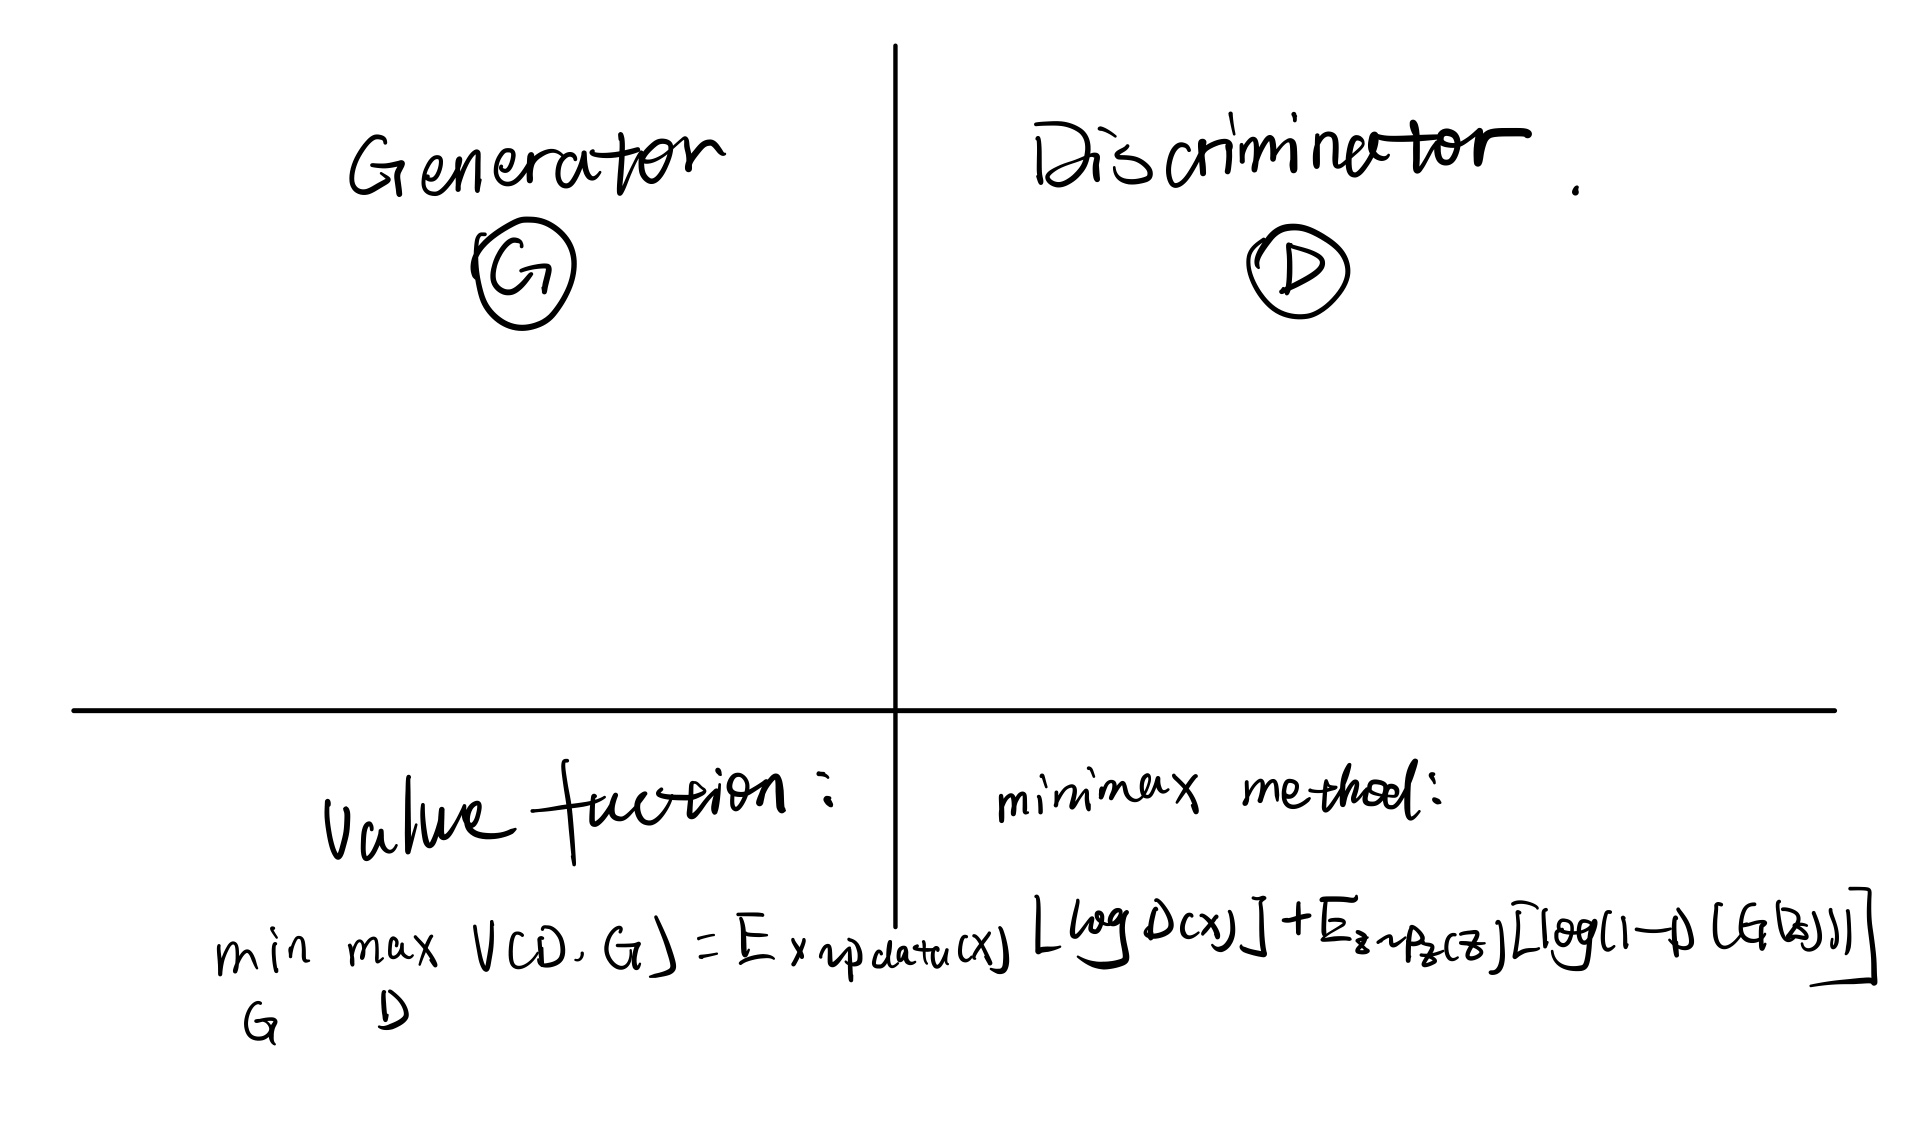 Generator
G
Discriminator.
D
Value fuction:
minimax method:
min max V(D, G) = E x~pdata(x) [log D(x)] + E z~pz(z) [log(1-D(G(z)))]
G D